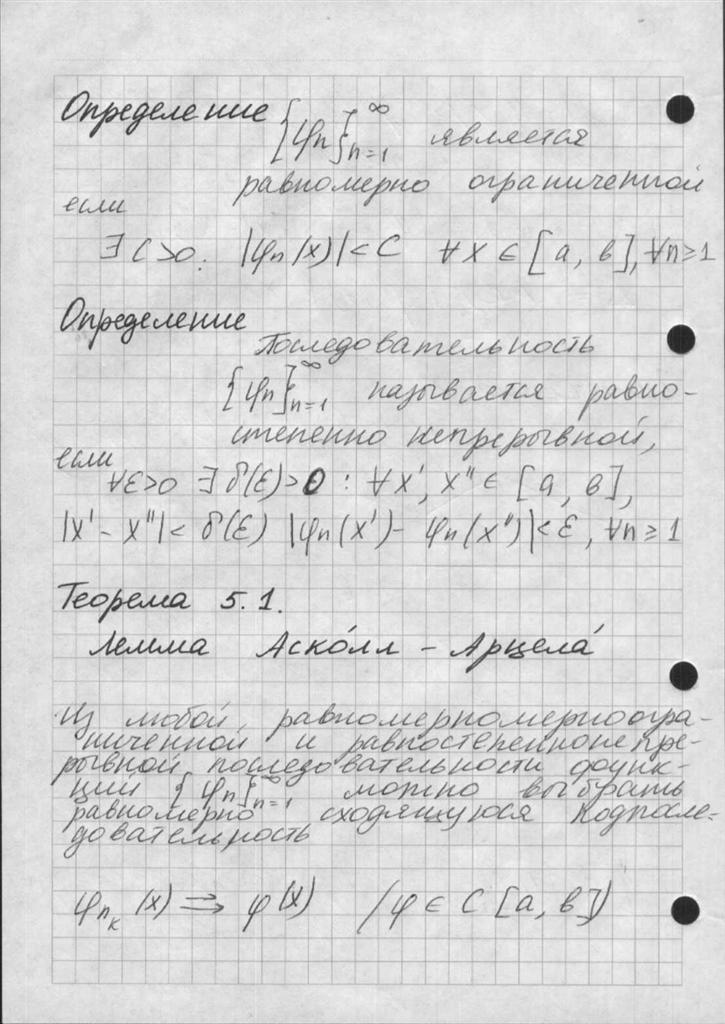 Определение {φn}_{n=1}^∞ является
равномерно ограниченной
если
∃ C>0. |φn(x)|<C ∀x ∈ [a, в], ∀n≥1
Определение
Последовательность
{φn}_{n=1}^∞ называется равно-
степенно непрерывной,
если
∀ε>0 ∃ δ(ε)>0 : ∀x', x'' ∈ [a, в],
|x' - x''| < δ(ε) |φn(x') - φn(x'')| < ε, ∀n ≥ 1
Теорема 5.1.
Лемма Аско́лл - Арцела́
Из любой, равномерномерноогра-
ниченной и равностепеннонепре-
рывной последовательности функ-
ций {φn}_{n=1}^∞ можно выбрать
равномерно сходящуюся подпосле-
довательность
φ_{n_k}(x) ⇉ φ(x) (φ ∈ C [a, в])